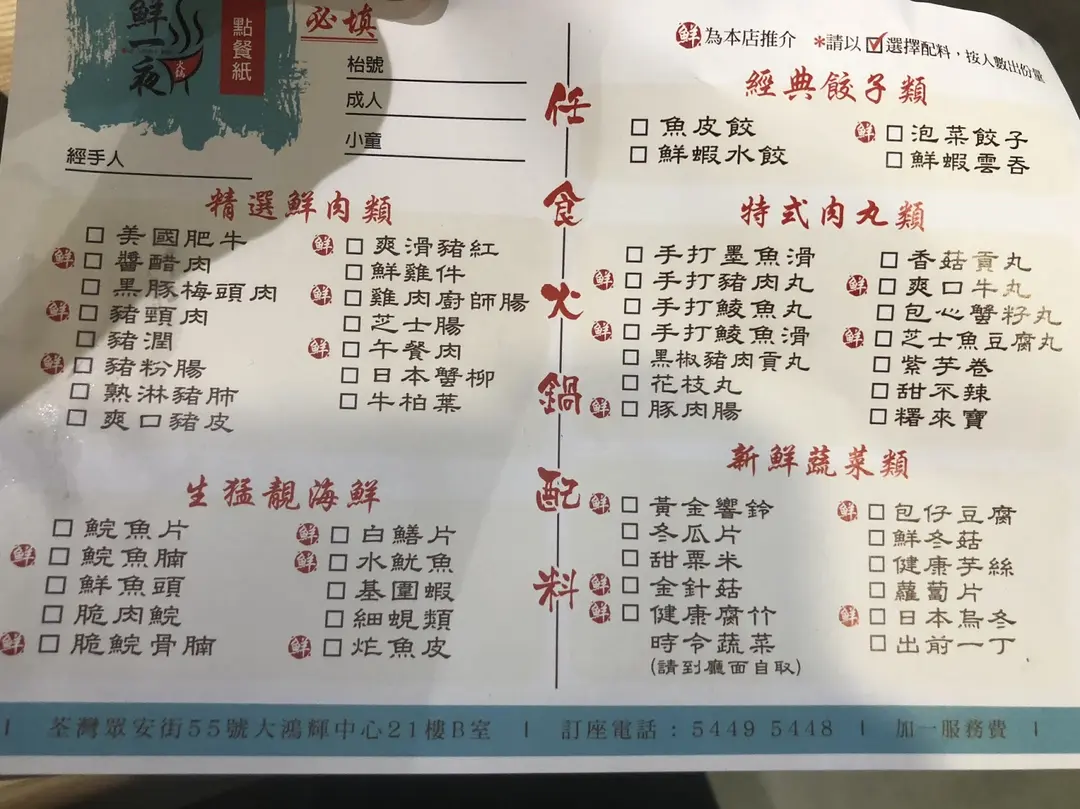 鮮一夜
火鍋
點餐紙
必填
枱號
成人
小童
經手人
任食火鍋配料
鮮為本店推介 *請以☑選擇配料，按人數出份量
精選鮮肉類
□ 美國肥牛
鮮 □ 醬醋肉
□ 黑豚梅頭肉
鮮 □ 豬頸肉
□ 豬潤
鮮 □ 豬粉腸
□ 熟淋豬肺
□ 爽口豬皮
鮮 □ 爽滑豬紅
□ 鮮雞件
鮮 □ 雞肉廚師腸
□ 芝士腸
鮮 □ 午餐肉
□ 日本蟹柳
□ 牛柏葉
生猛靚海鮮
□ 鯇魚片
鮮 □ 鯇魚腩
□ 鮮魚頭
□ 脆肉鯇
鮮 □ 脆鯇骨腩
鮮 □ 白鱔片
鮮 □ 水魷魚
□ 基圍蝦
□ 細蜆類
鮮 □ 炸魚皮
經典餃子類
□ 魚皮餃
□ 鮮蝦水餃
鮮 □ 泡菜餃子
□ 鮮蝦雲吞
特式肉丸類
□ 手打墨魚滑
鮮 □ 手打豬肉丸
□ 手打鯪魚丸
鮮 □ 手打鯪魚滑
□ 黑椒豬肉貢丸
□ 花枝丸
鮮 □ 豚肉腸
□ 香菇貢丸
鮮 □ 爽口牛丸
□ 包心蟹籽丸
鮮 □ 芝士魚豆腐丸
□ 紫芋卷
□ 甜不辣
□ 糬來寶
新鮮蔬菜類
鮮 □ 黃金響鈴
□ 冬瓜片
□ 甜粟米
鮮 □ 金針菇
鮮 □ 健康腐竹
時令蔬菜
(請到廳面自取)
鮮 □ 包仔豆腐
□ 鮮冬菇
□ 健康芋絲
□ 蘿蔔片
鮮 □ 日本烏冬
□ 出前一丁
| 荃灣眾安街55號大鴻輝中心21樓B室 | 訂座電話：5449 5448 | 加一服務費 |